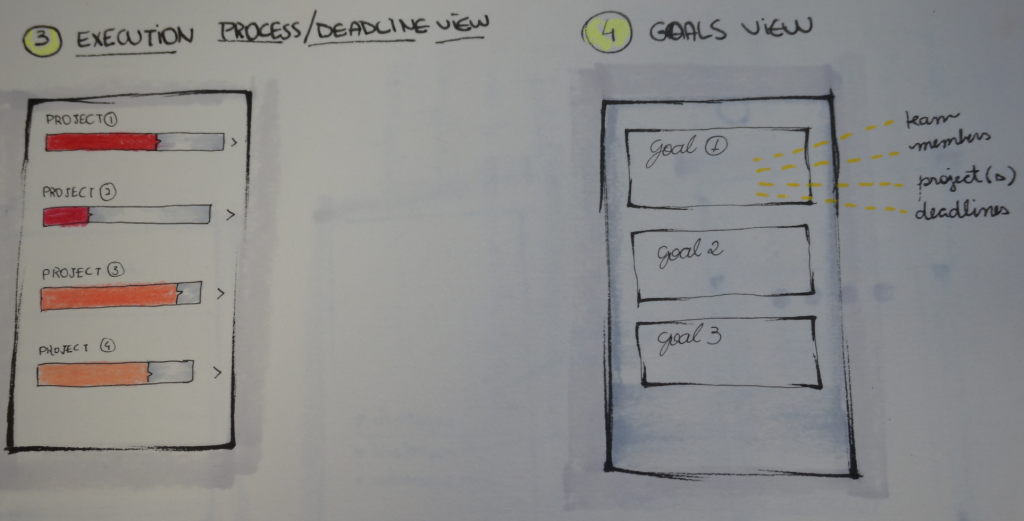 3 EXECUTION PROCESS/DEADLINE VIEW
PROJECT 1
>
PROJECT 2
>
PROJECT 3
>
PROJECT 4
>
4 GOALS VIEW
goal 1
team
members
project(s)
deadlines
goal 2
goal 3